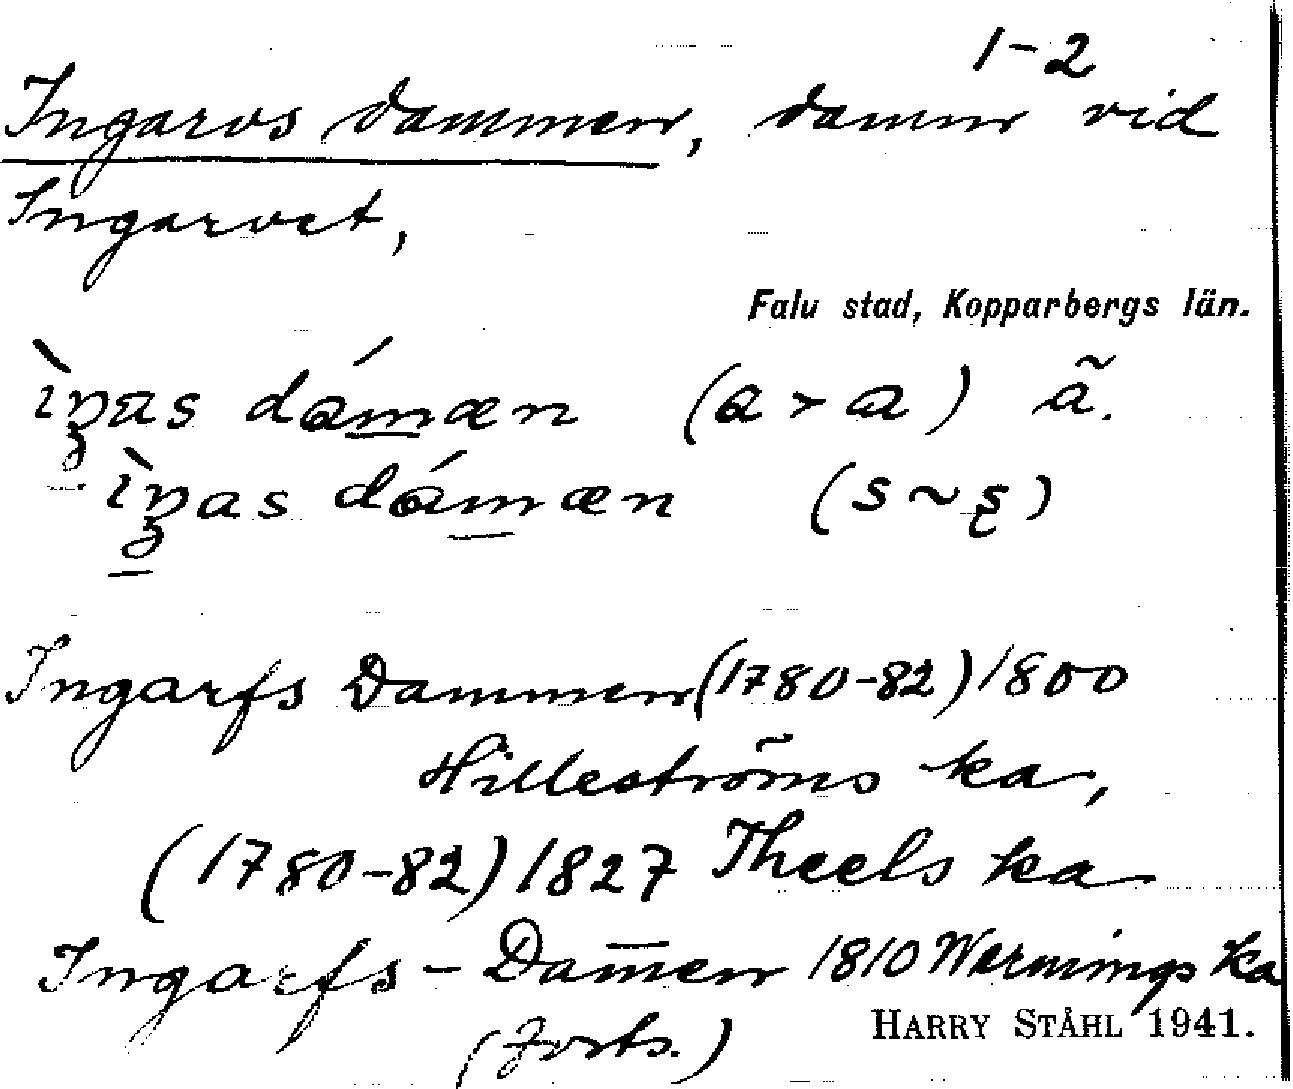 1-2
Ingarvs dammen, damm vid
Ingarvet,
Falu stad, Kopparbergs län.
(a > a) ã.
(s ~ ş)
Ingarfs Dammen (1780-82) 1800
Hilleströms ka,
(1780-82) 1827 Theels ka
Ingarfs - Dam̅en 1810 Warnings ka
HARRY STÅHL 1941.
(Forts.)